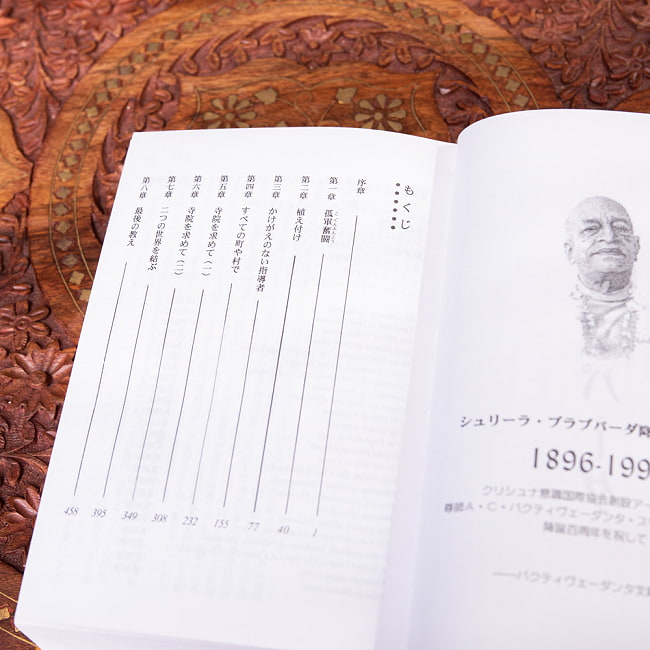 もくじ
序章 1
第一章 孤軍奮闘 40
第二章 植え付け 77
第三章 かけがえのない指導者 155
第四章 すべての町や村で 232
第五章 寺院を求めて（一） 308
第六章 寺院を求めて（二） 349
第七章 二つの世界を結ぶ 395
第八章 最後の教え 458
シュリーラ・プラブパーダ降
1896-199
クリシュナ意識国際協会創設アー
尊師A・C・バクティヴェーダンタ・ス
降誕百周年を祝して
──バクティヴェーダンタ文